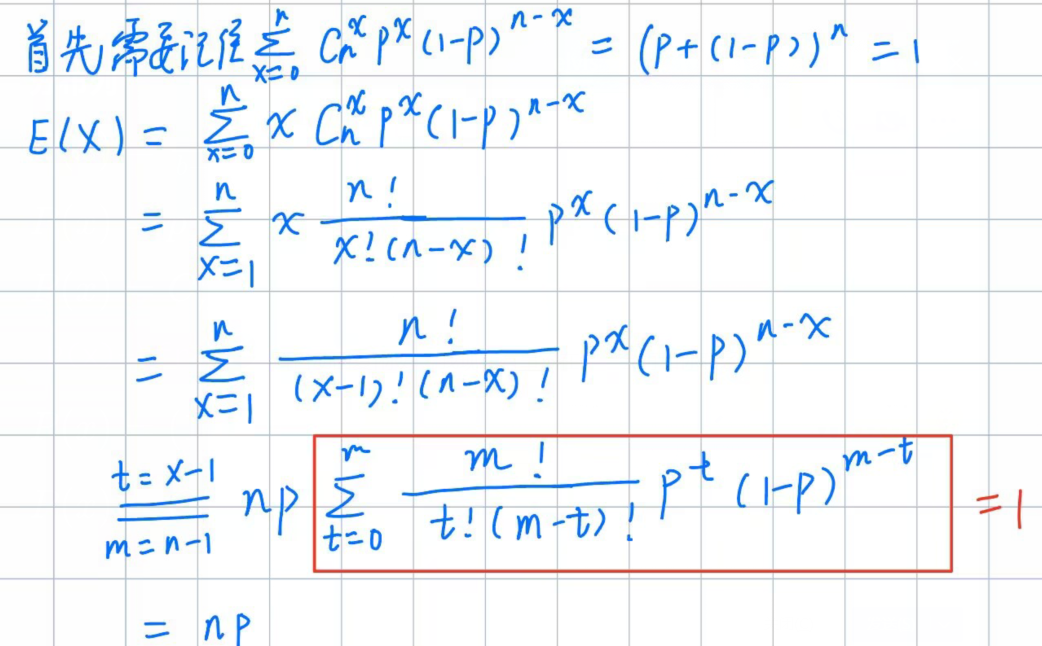 首先,需要记住 $\sum_{x=0}^{n} C_n^x p^x (1-p)^{n-x} = (p+(1-p))^n = 1$
$E(X) = \sum_{x=0}^{n} x C_n^x p^x (1-p)^{n-x}$
$= \sum_{x=1}^{n} x \frac{n!}{x!(n-x)!} p^x (1-p)^{n-x}$
$= \sum_{x=1}^{n} \frac{n!}{(x-1)!(n-x)!} p^x (1-p)^{n-x}$
$\overset{t=x-1}{\underset{m=n-1}{=}} np \sum_{t=0}^{m} \frac{m!}{t!(m-t)!} p^t (1-p)^{m-t} = 1$
$= np$